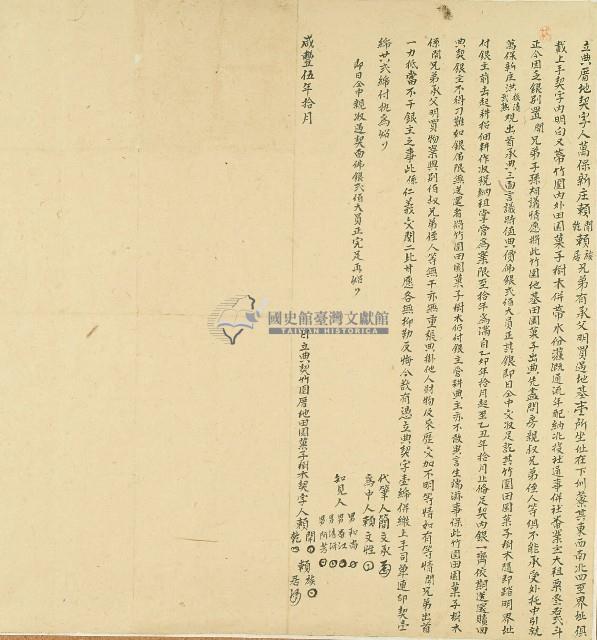 立典厝地契字人萬保新庄賴開乾賴族居兄弟有承父明買過地基壹所坐址在下州藔其東西南北四至界址俱
載上手契字內明白又帶竹圍內外田園菓子樹木併帶水份灌溉通流年配納北投社通事併社番業主大租粟叁石弍斗
正今因乏銀別置開兄弟子孫相議情愿將此竹圍地基田園菓子出典先盡問房親叔兄弟侄人等俱不能承受外托中引就
萬保新庄洪 現出首承典三面言議時值典價佛銀弍佰大員正其銀即日仝中交收足訖其竹圍田園菓子樹木隨即踏明界址
付銀主前去起耕招佃耕作收稅納租掌管為業限至拾年為滿自乙卯年拾月起至乙丑年拾月止俻足契內銀一齊依期送還贖回
典契銀主不得刁難如銀備限無送還者將竹圍田園菓子樹木仍付銀主管耕典主亦不敢異言生端滋事保此竹圍田園菓子樹木
係開兄弟承父明買物業與別伯叔兄弟侄人等無干亦無重張典掛他人財物及來歷交加不明等情如有等情開兄弟出首
一力抵當不干銀主之事此係仁義交關二比甘愿各無抑勒反悔今欲有憑立典契字壹紙併繳上手司單連印契壹
紙共弍紙付執為炤
即日仝中親收過契面佛銀弍佰大員正完足再炤
代筆人簡文承
為中人賴文性
知見人
咸豐伍年拾月
日立典契竹圍厝地田園菓子樹木契字人賴開乾賴族居
國史館臺灣文獻館
TAIWAN HISTORICA